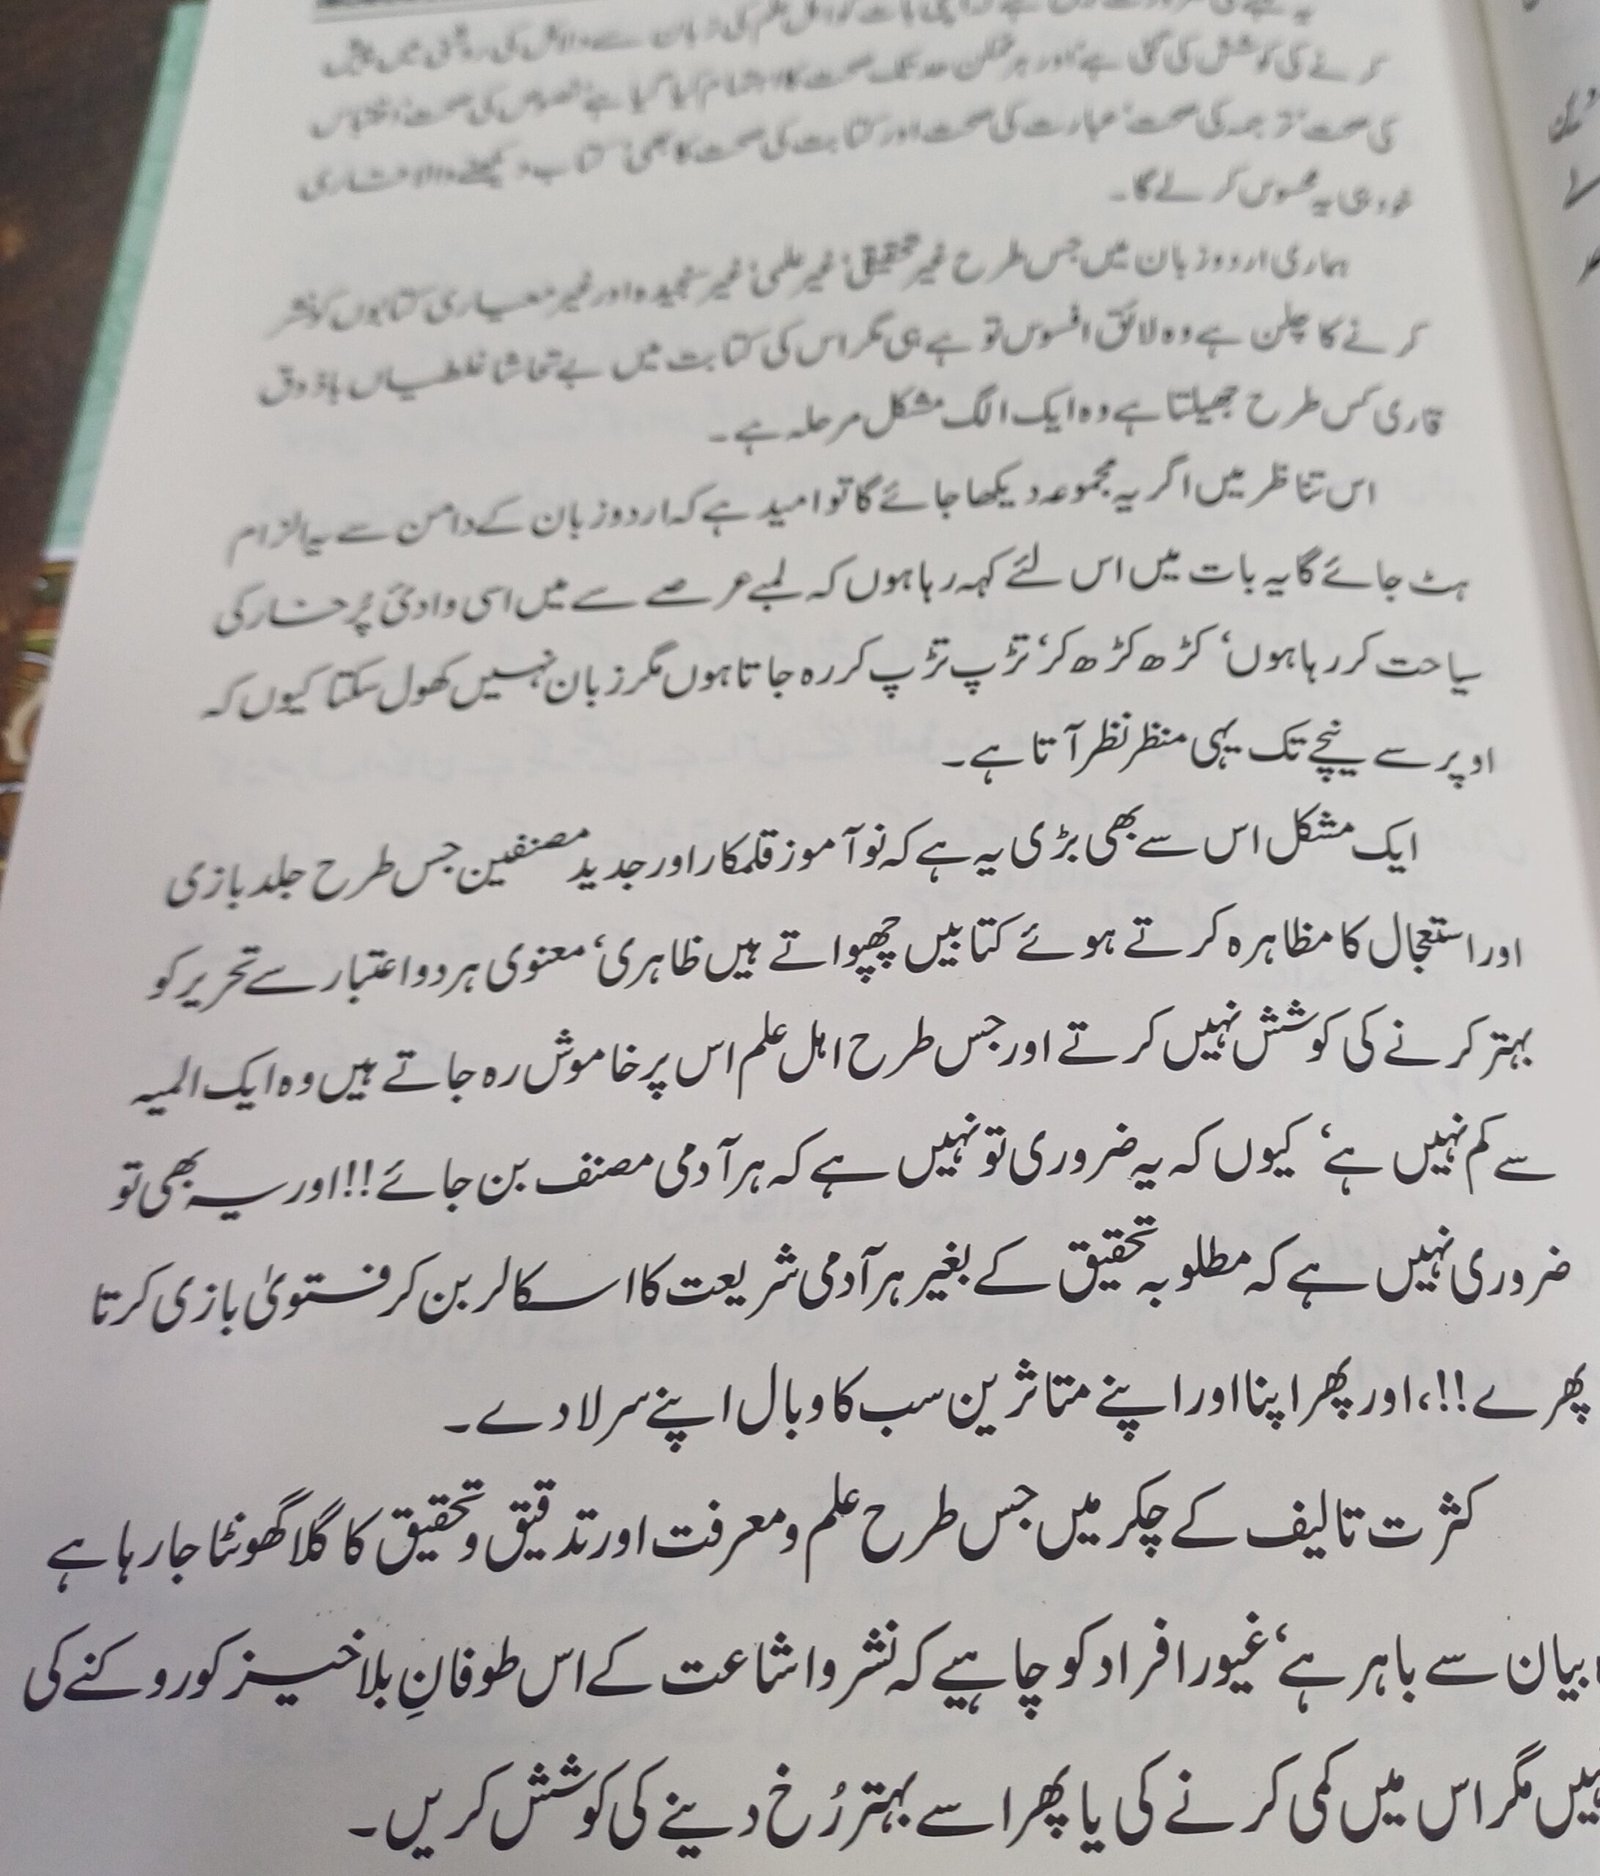 کرنے کی کوشش کی گئی ہے اور ہر ممکن حد تک صحت کا اہتمام کیا گیا ہے نصوص کی صحت، اقتباس
کی صحت، ترجمہ کی صحت، عبارت کی صحت اور کتابت کی صحت کا بھی، کتاب دیکھنے والا قاری
خود ہی یہ محسوس کرلے گا۔
ہماری اردو زبان میں جس طرح غیر تحقیقی، غیر علمی، غیر سنجیدہ اور غیر معیاری کتابوں کو نشر
کرنے کا چلن ہے وہ لائق افسوس تو ہے ہی مگر اس کی کتابت میں بے تحاشا غلطیاں باذوق
قاری کس طرح جھیلتا ہے وہ ایک الگ مشکل مرحلہ ہے۔
اس تناظر میں اگر یہ مجموعہ دیکھا جائے گا تو امید ہے کہ اردو زبان کے دامن سے یہ الزام
ہٹ جائے گا یہ بات میں اس لئے کہہ رہا ہوں کہ لمبے عرصے سے میں اسی وادئ پُر خار کی
سیاحت کر رہا ہوں، کڑھ کڑھ کر، تڑپ تڑپ کر رہ جاتا ہوں مگر زبان نہیں کھول سکتا کیوں کہ
اوپر سے نیچے تک یہی منظر نظر آتا ہے۔
ایک مشکل اس سے بھی بڑی یہ ہے کہ نو آموز قلمکار اور جدید مصنفین جس طرح جلد بازی
اور استعجال کا مظاہرہ کرتے ہوئے کتابیں چھپواتے ہیں ظاہری، معنوی ہر دو اعتبار سے تحریر کو
بہتر کرنے کی کوشش نہیں کرتے اور جس طرح اہل علم اس پر خاموش رہ جاتے ہیں وہ ایک المیہ
سے کم نہیں ہے، کیوں کہ یہ ضروری تو نہیں ہے کہ ہر آدمی مصنف بن جائے!! اور یہ بھی تو
ضروری نہیں ہے کہ مطلوبہ تحقیق کے بغیر ہر آدمی شریعت کا اسکالر بن کر فتویٰ بازی کرتا
پھرے!!، اور پھر اپنا اور اپنے متاثرین سب کا وبال اپنے سر لادے۔
کثرت تالیف کے چکر میں جس طرح علم و معرفت اور تدقیق و تحقیق کا گلا گھونٹا جا رہا ہے
بیان سے باہر ہے، غیور افراد کو چاہیے کہ نشر و اشاعت کے اس طوفانِ بلاخیز کو روکنے کی
مگر اس میں کمی کرنے کی یا پھر اسے بہتر رُخ دینے کی کوشش کریں۔